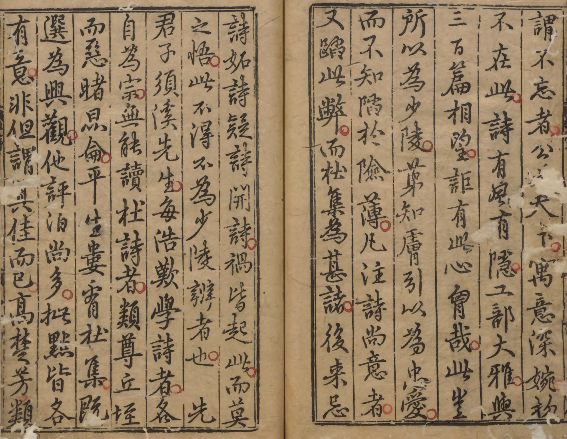 謂不忘者公天下寓意深婉初
不在此詩有風有隱工部大雅與
三百篇相望詎有此心胷哉此豈
所以為少陵苐知膚引以為忠愛
而不知陷於險薄凡注詩尚意者
又蹈此弊而杜集為甚諸後来忌
詩妬詩疑詩開詩禍皆起此而莫
之悟此不得不為少陵辨者也先
君子須溪先生每浩歎學詩者各
自為宗無能讀杜詩者類尊丘垤
而惡睹昆侖平生婁看杜集既
選為興觀他評泊尚多批點皆各
有意非但謂其佳而已髙楚芳類